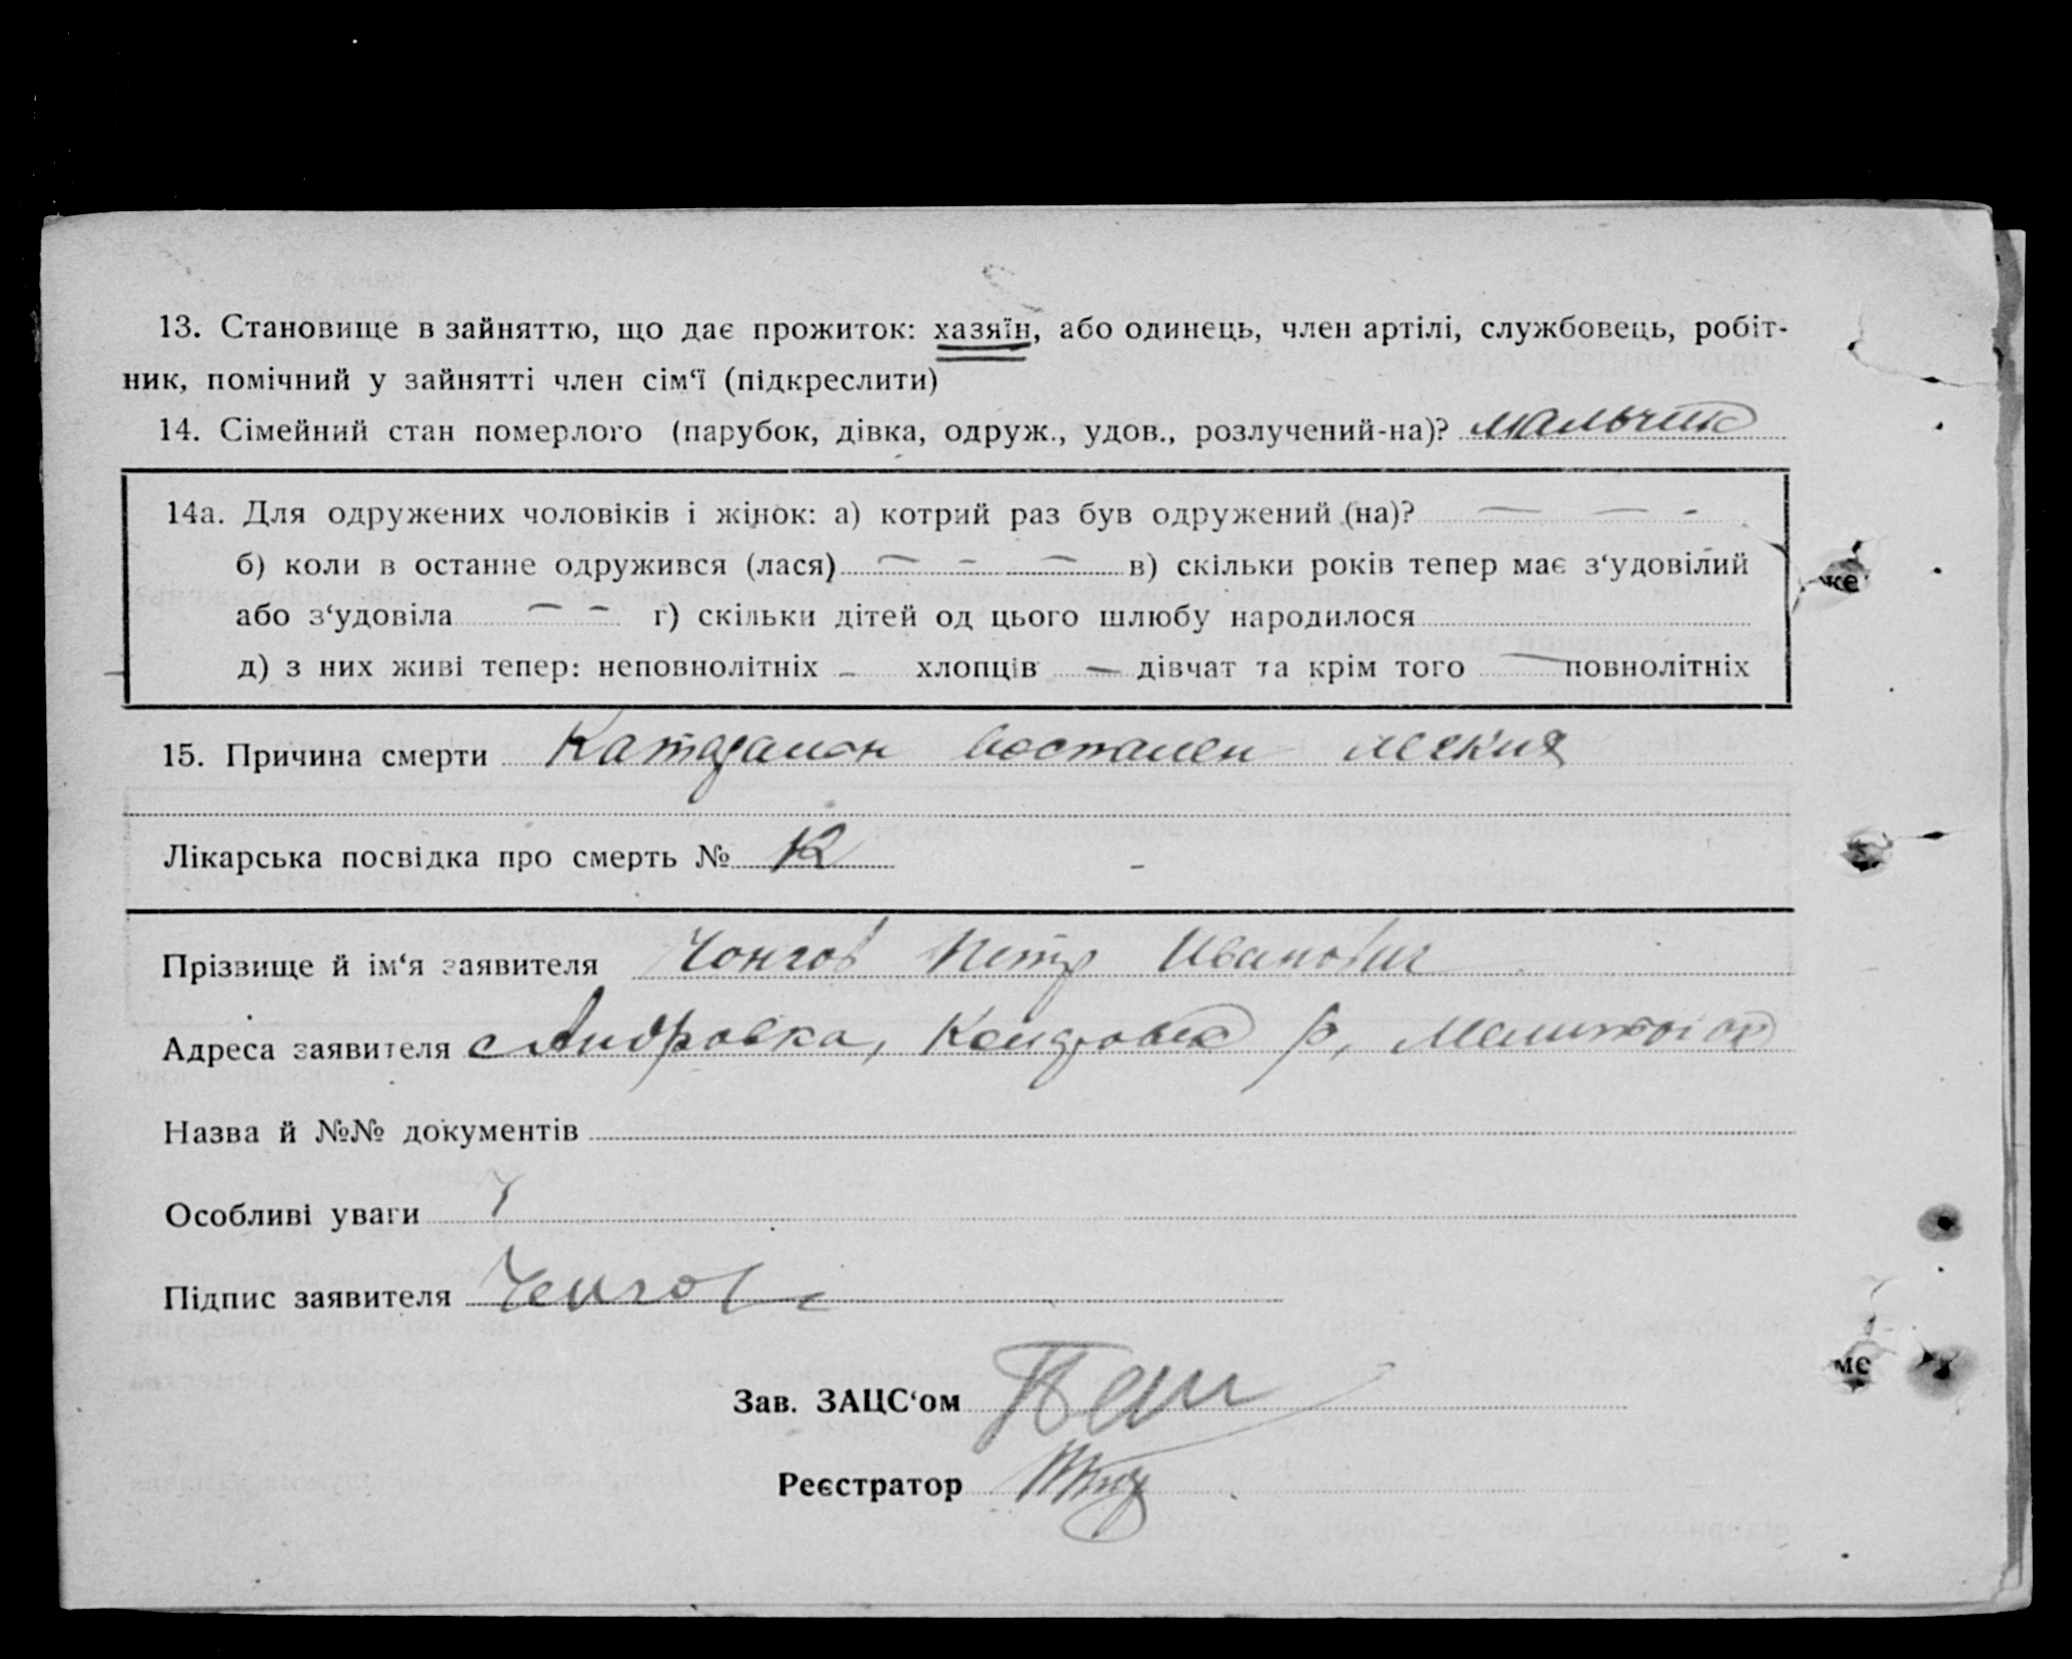 13. Становище в зайняттю, що дає прожиток: хазяїн, або одинець, член артілі, службовець, робіт-
ник, помічний у зайнятті член сім‘ї (підкреслити)
14. Сімейний стан померлого (парубок, дівка, одруж., удов., розлучений-на)? мальчик
14а. Для одружених чоловіків і жінок: а) котрий раз був одружений (на)? — — -
б) коли в останнє одружився (лася) — - — в) скільки років тепер має з‘удовілий
або з‘удовіла — – г) скільки дітей од цього шлюбу народилося
д) з них живі тепер: неповнолітніх – хлопців — дівчат та крім того — повнолітніх
15. Причина смерти легких
Лікарська посвідка про смерть №
Прізвище й ім‘я заявителя Чонгов Петр Иванович
Адреса заявителя с Андровка, р,
Назва й №№ документів
Особливі уваги
Підпис заявителя Ченгов
Зав. ЗАЦС‘ом
Реєстратор
же
ме